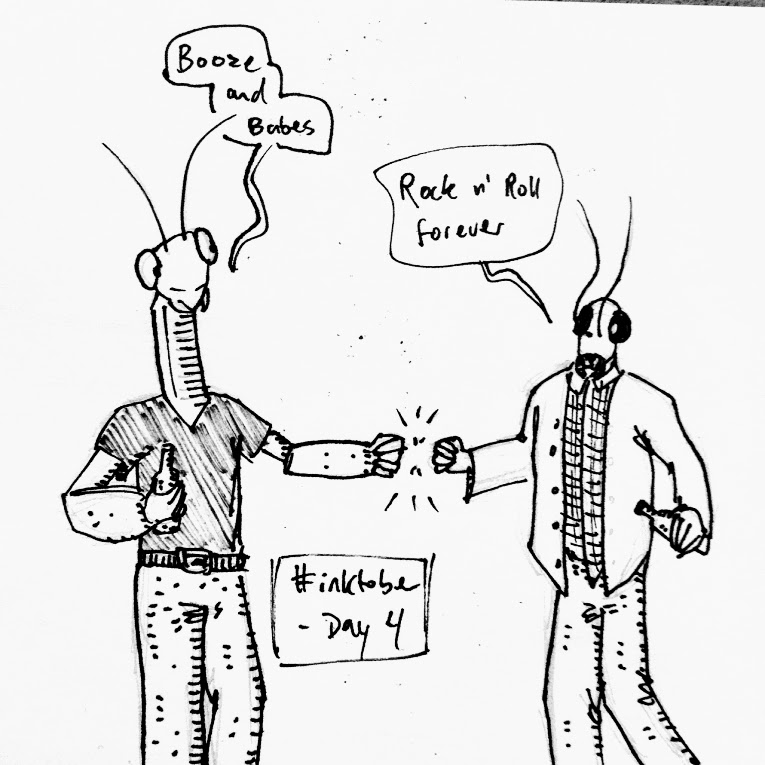 Booze
and
Babes
Rock n' Roll
forever
#inktober
- Day 4